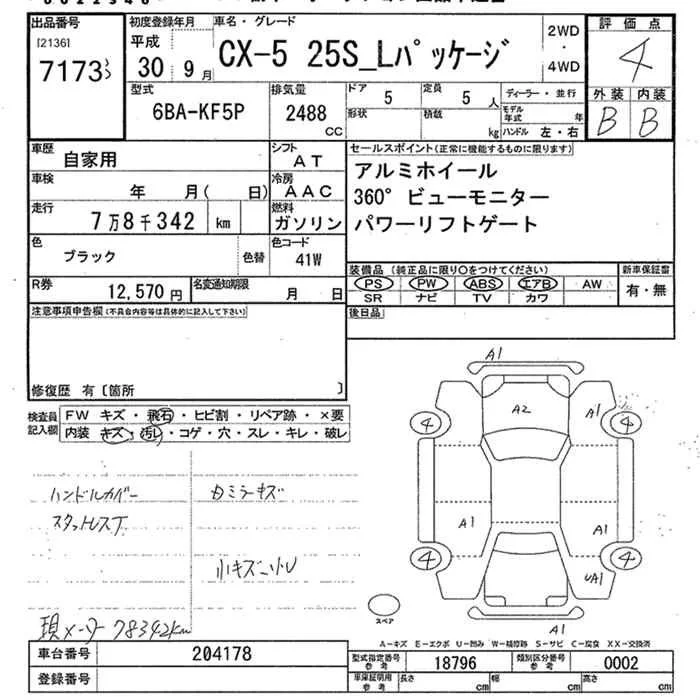 出品番号 初度登録年月 車名・グレード 2WD・4WD 評価点
[2136]
7173 平成30年9月 CX-5 25S_Lパッケージ 4
型式 排気量 ドア 定員 ディーラー・並行 外装 内装
6BA-KF5P 2488CC 5 5人 B B
形状 積載 kg モデル年式 年
ハンドル 左・右
車歴 自家用 シフト AT セールスポイント(正常に機能するものに限ります)
車検 年 月(日) 冷房 AAC アルミホイール
走行 7万8千342 km 燃料 ガソリン 360° ビューモニター
パワーリフトゲート
色 ブラック 色替 色コード 41W
装備品(純正品に限り○をつけてください) 新車保証書
R券 12,570円 名変通知期限 月 日 PS PW ABS エアB AW 有・無
SR ナビ TV カワ
注意事項申告欄(不具合内容等は具体的に記入して下さい) 後日品
修復歴 有〔箇所 〕
検査員記入欄 FW キズ・飛石・ヒビ割・リペア跡・×要
内装 キズ・汚レ・コゲ・穴・スレ・キレ・破レ
ハンドルカバー カミラーキズ
スタットレスT
小キズ・小U
現メーター 78342km
A1
A2 A1
4 4
A1 A1
4 4
UA1
A1
スペア
A−キズ E−エクボ U−凹み W−補修跡 S−サビ C−腐食 XX−交換済
車台番号 204178 型式指定番号 参考 18796 類別区分番号 参考 0002
登録番号 車庫証明用 参考 長さ cm 幅 cm 高さ cm